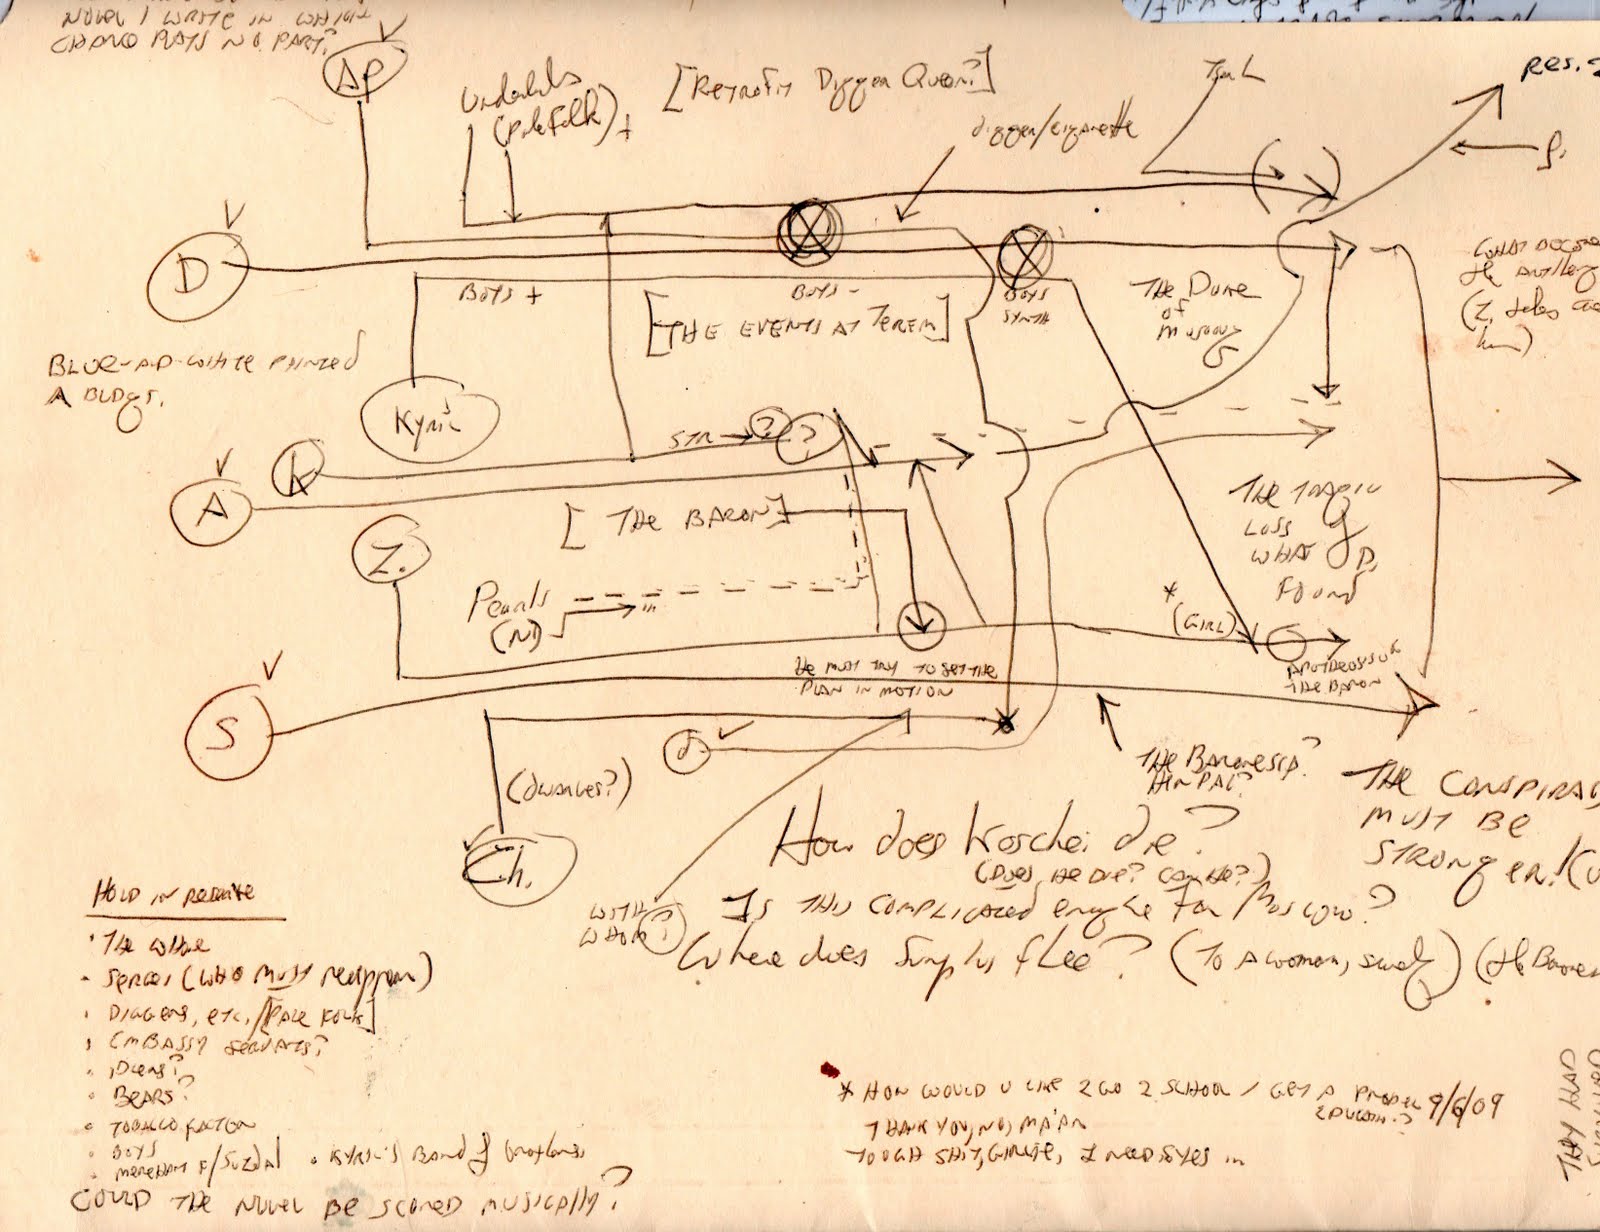 NOVEL I WROTE IN WHICH
CHANCE PLAYS NO PART?
AP
Underlords
(pale folk) +
[Retrofit Digger Queen?]
digger/cigarette
Tsar L
Res.
D
BOYS +
BOYS -
BOYS
SYNTH
[THE EVENTS AT TEREM]
THE DUKE
of
MUSCOVY
WHAT
the artillery
(Z. takes
him)
BLUE-AND-WHITE PAINTED
A BLDGS.
Kyril
K
A
STR → ? ?
[THE BARON]
Z.
Pearls
(N1)
in
THE TRAGIC
LOSS of
WHAT D.
FOUND
*
(GIRL)
APOTHEOSIS of
THE BARON
HE MUST TRY TO SET THE
PLAN IN MOTION
S
d.
(dwarves?)
Ch.
THE BARONESSA?
HER PAL?
THE CONSPIRACY
MUST BE
STRONGER!
How does Koschei die?
(DOES HE DIE? CAN HE?)
WITH
WHOM?
Is THIS COMPLICATED enough for Moscow?
Where does Surplus flee? (To A woman, surely) (the Barones
HOLD IN RESERVE
• THE WHORE
- SERGEI (WHO MUST reappear)
• DIGGERS, etc. / [PALE FOLK]
• EMBASSY SERVANTS?
• BEARS?
• TOBACCO FACTOR
• BOYS
• MERCHANT F/SUZDAL • KYRIL'S BAND of brothers
COULD THE NOVEL BE SCORED MUSICALLY?
* HOW WOULD U LIKE 2 GO 2 SCHOOL / GET A PROPER
EDUCATION?
9/6/09
THANK YOU, NO, MA'AM
TOUGH SHIT, GIRLIE, I NEED EYES in
THEY HAD